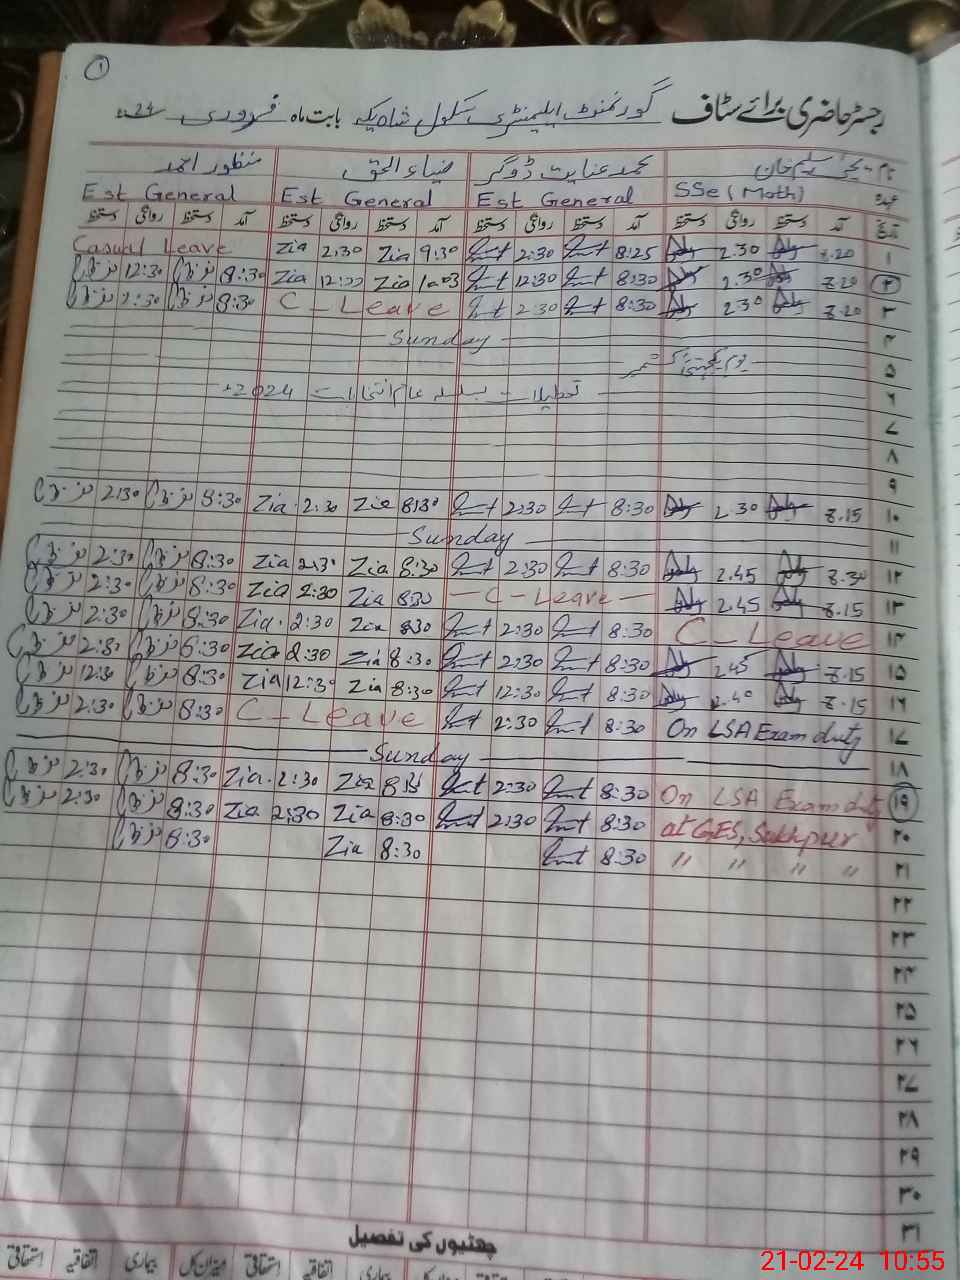 ۱
رجسٹر حاضری برائے سٹاف گورنمنٹ ایلیمنٹری سکول شاہ یکہ بابت ماہ فروری 24ء
نام محمد عنایت ڈوگر ضیاء الحق منظور احمد
عہدہ SSe (Math) Est General Est General Est General
تاریخ آمد دستخط روانگی دستخط آمد دستخط روانگی دستخط آمد دستخط روانگی دستخط آمد دستخط روانگی دستخط
۱ 8.20 2.30 8:25 2:30 9:30 Zia 2:30 Zia Casual Leave
۲ 8.20 2.30 8:30 12:30 Zia 12:30 Zia 8:30 12:30
۳ 8.20 2.30 8:30 2:30 C - Leave 8:30 2:30
۴ Sunday
۵ یوم یکجہتی کشمیر
۶ تعطیلات بسلسلہ عام انتخابات 2024ء
۷
۸
۹
۱۰ 8.15 2.30 8:30 2:30 8:30 Zia 2:30 Zia 8:30 2:30
۱۱ Sunday
۱۲ 8.30 2.45 8:30 2:30 8:30 Zia 2:30 Zia 8:30 2:30
۱۳ 8.15 2.45 — C - Leave — 8:30 Zia 2:30 Zia 8:30 2:30
۱۴ C - Leave 8:30 2:30 8:30 Zia 2:30 Zia 8:30 2:30
۱۵ 8.15 2.45 8:30 2:30 8:30 Zia 2:30 Zia 8:30 2:30
۱۶ 8.15 2.40 8:30 12:30 8:30 Zia 12:30 Zia 8:30 12:30
۱۷ On LSA Exam duty 8:30 2:30 C - Leave 8:30 2:30
۱۸ Sunday
۱۹ On LSA Exam duty 8:30 2:30 Zia 2:30 Zia 8:30 2:30
۲۰ at GES, Sukhpur 8:30 2:30 8:30 Zia 2:30 Zia 8:30 2:30
۲۱ " " " " 8:30 8:30 Zia 8:30
۲۲
۲۳
۲۴
۲۵
۲۶
۲۷
۲۸
۲۹
۳۰
۳۱
چھٹیوں کی تفصیل
اتفاقیہ بیماری استحقاقی میزان کل بیماری اتفاقیہ استحقاقی
21-02-24 10:55